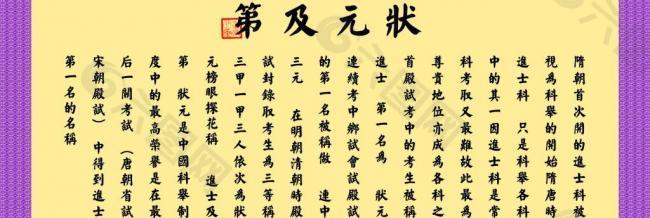 狀元及第
隋朝首次開的進士科被
視為科舉的開始隋唐時
進士科 只是科舉各科
中的其一因進士科是常
科考取又最難故此最為
尊貴地位亦成為各科之
首殿試考中的考生被稱
進士 第一名為 狀元
連續考中鄉試會試殿試
的第一名被稱做 連中
三元 在明朝清朝時殿
試封錄取考生為三等稱
三甲一甲三人依次為狀
元榜眼探花稱 進士及
第 狀元是中國科舉制
度中的最高榮譽是在最
后一關考試（唐朝省試
宋朝殿試）中得到進士
第一名的名稱